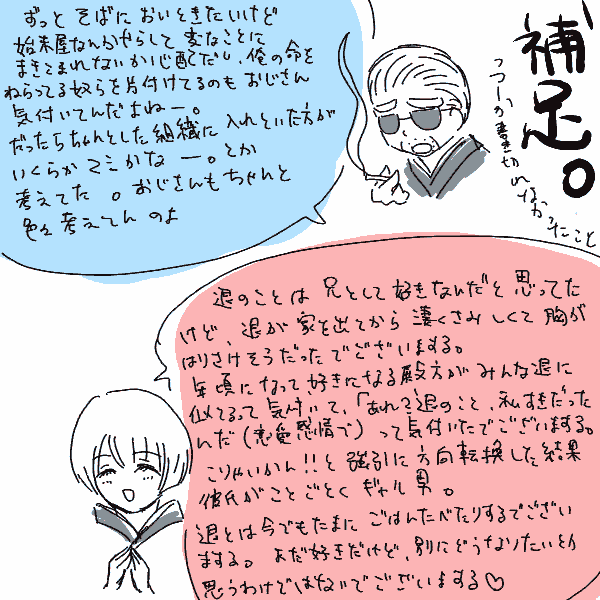 補足。
っつーか書き切れなかったこと
ずっと そばに おいときたいけど
始末屋なんかやらして 変なことに
まきこまれないか心配だし、俺の命を
ねらってる奴らを片付けてるのも おじさん
気付いてんだよねー。
だったらちゃんとした組織に 入れといた方が
いくらか マシかな ー。とか
考えてた 。おじさんもちゃんと
色々 考えてん のよ
退のことは 兄として 好きなんだと 思ってた
けど、退が 家を出てから 凄くさみしくて 胸が
はりさけそうだったでございまする。
年頃になって 好きになる殿方が みんな退に
似てるって 気付いて、「あれ?退のこと、私すきだった
んだ(恋愛感情で)って気付いたでございまする。
こりゃいかん!!と 強引に 方向転換した結果
彼氏が ことごとく ギャル男。
退とは今でもたまに ごはんたべたりするでござい
まする。 まだ好きだけど、別にどうなりたいとか
思うわけではないでございまする♡